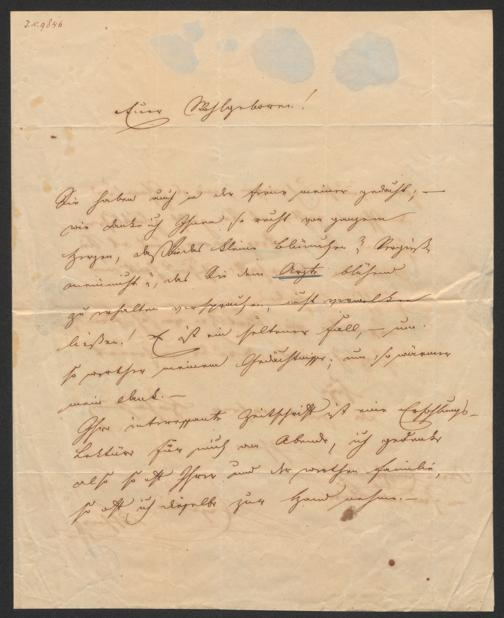 I.N. 9846
Euer Wohlgeboren!
Sie haben auch in der Ferne meiner gedacht; —
wie danke ich Ihnen so recht von ganzem
Herzen, daß Sie das kleine Blümchen „Vergiß-
meinnicht“, das Sie dem Arzte blühend
zu erhalten versprachen, nicht verwelken
ließen! Es ist ein seltener Fall, — um
so werther meinem Gedächtniße; um so wärmer
mein Dank. —
Ihre interessante Zeitschrift ist eine Erholungs-
Lektüre für mich am Abende, ich gedenke
also so oft Ihrer und der werthen Familie,
so oft ich dieselbe zur Hand nehme. —